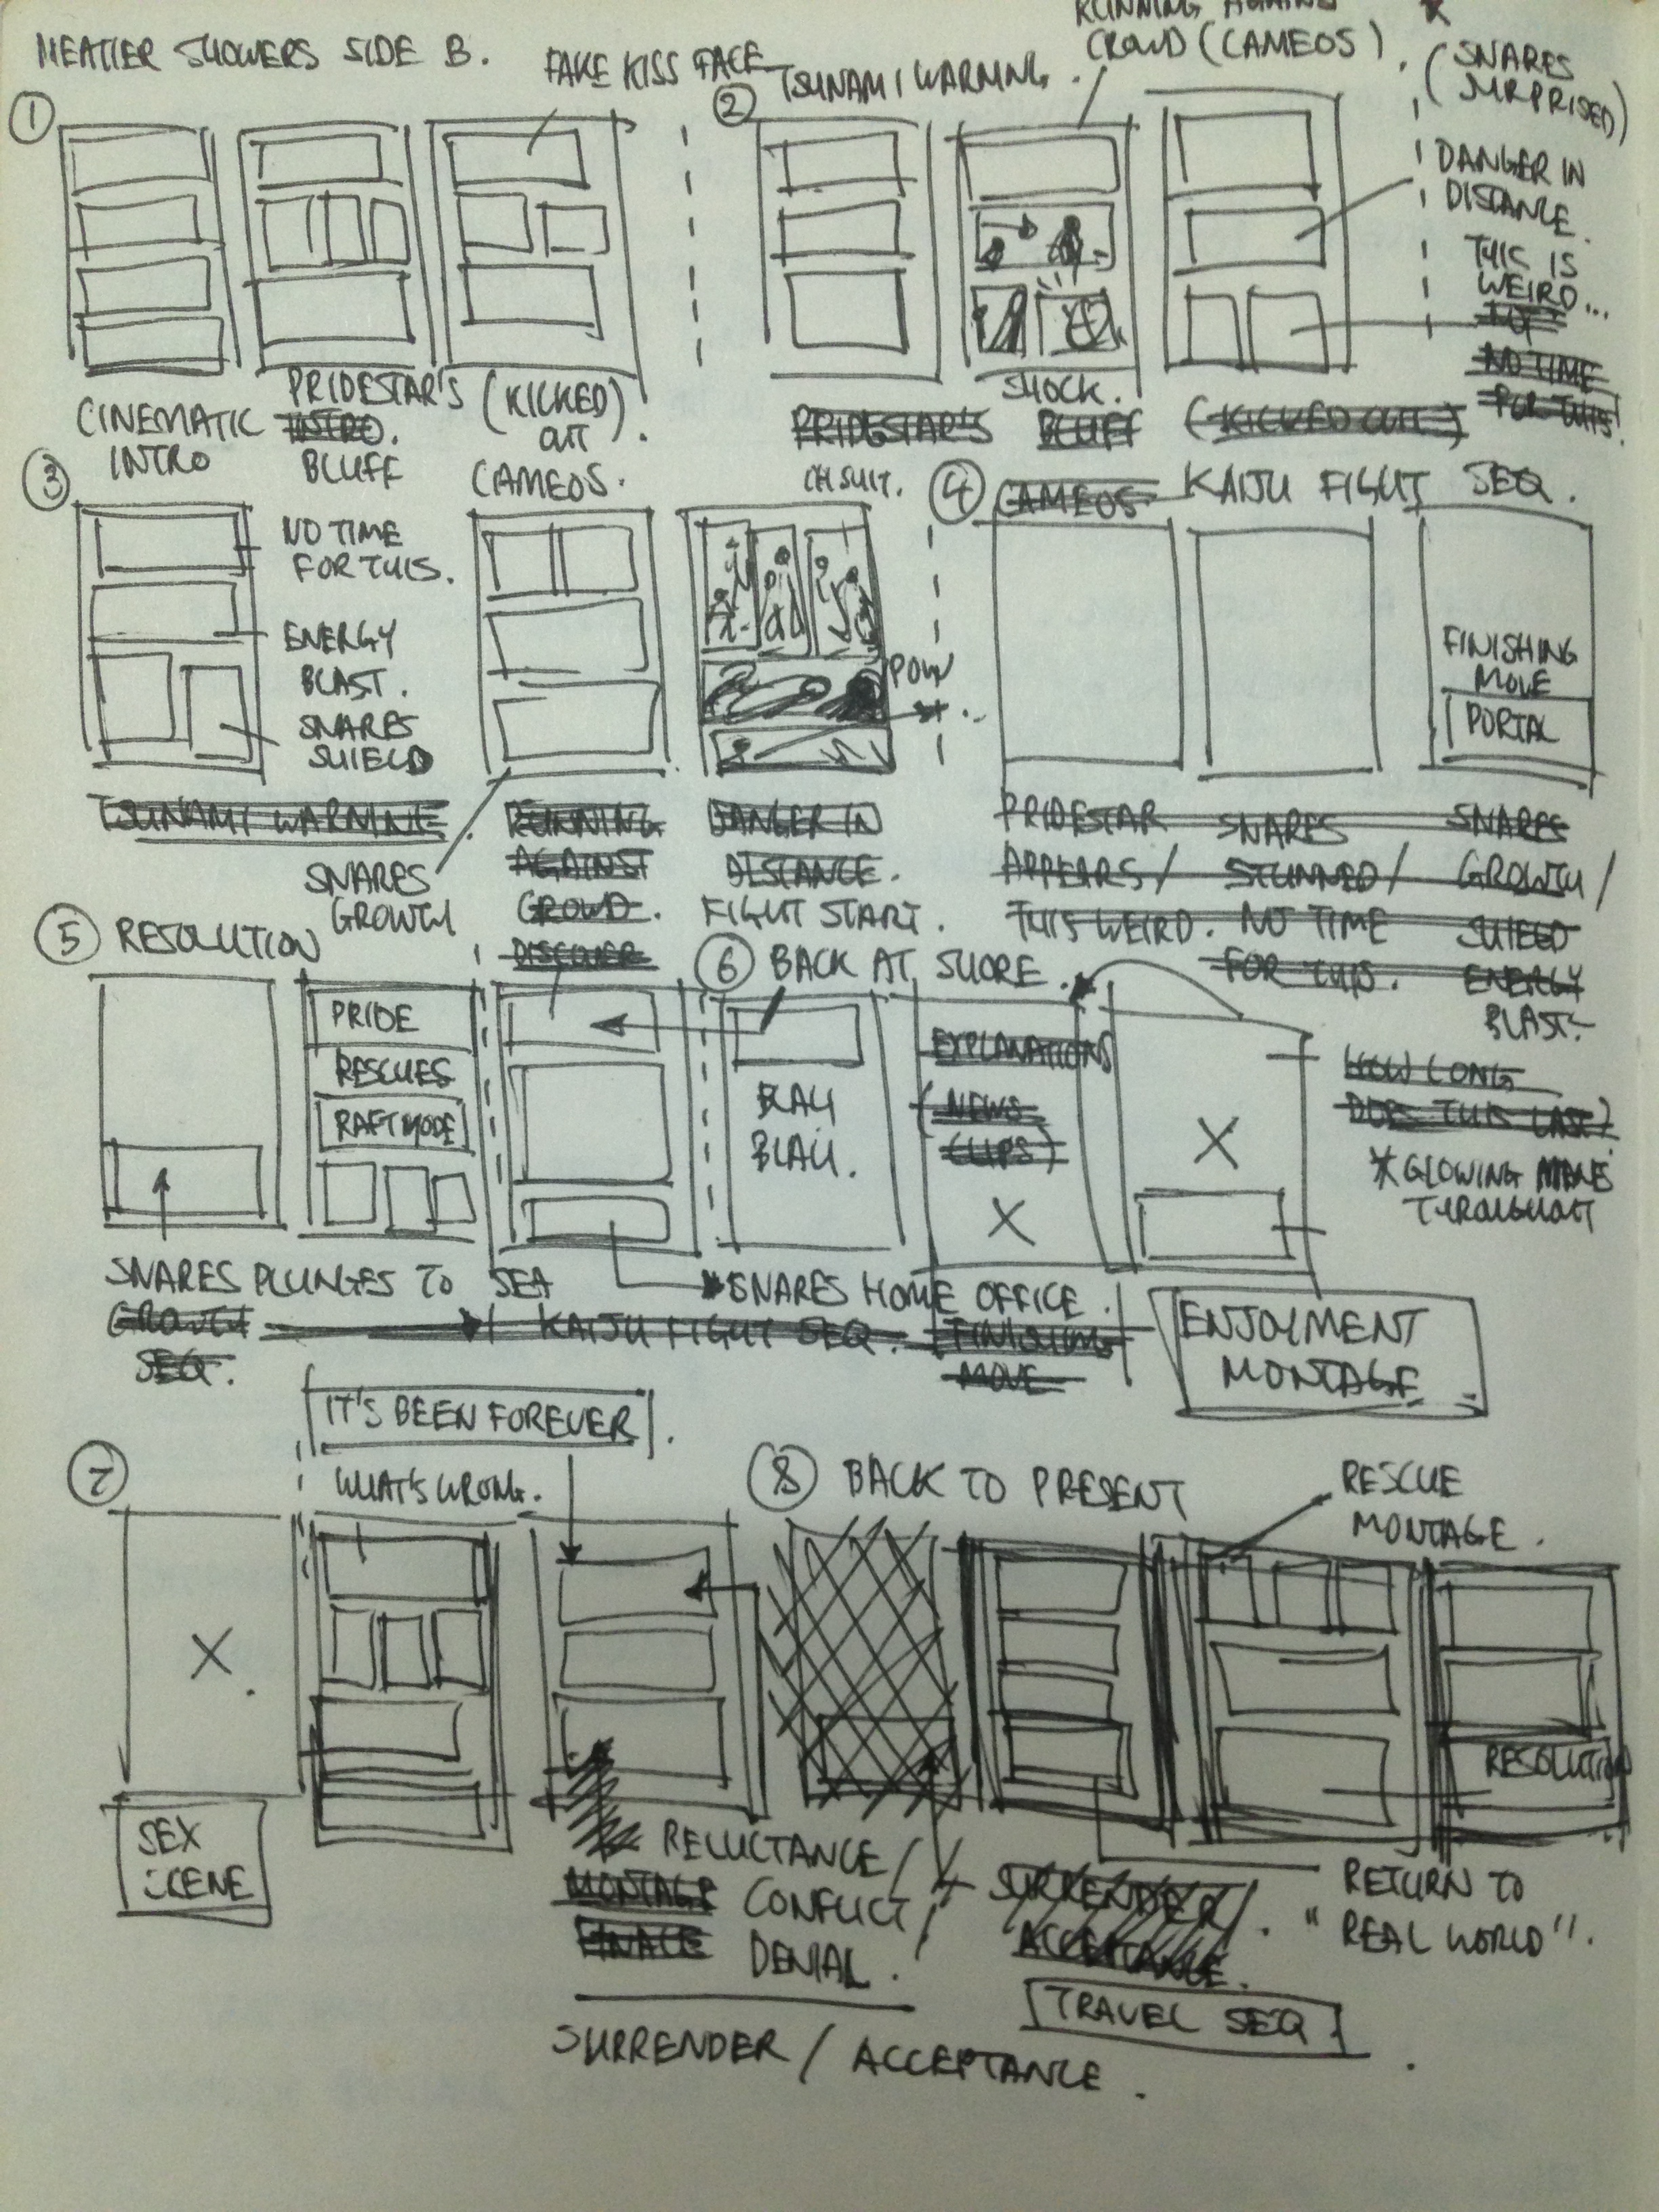 MEATIER SHOWERS SIDE B.
FAKE KISS FACE
1
CINEMATIC
INTRO
PRIDESTAR'S
INTRO.
BLUFF
(KICKED)
OUT.
CAMEOS.
2 TSUNAMI WARNING.
RUNNING AGAINST
CROWD (CAMEOS).
(SNARES
SURPRISED)
DANGER IN
DISTANCE.
THIS IS
WEIRD...
NO TIME
FOR THIS!
SHOCK.
PRIDESTAR'S BLUFF (KICKED OUT)
3
NO TIME
FOR THIS.
ENERGY
BLAST.
SNARES
SHIELD
TSUNAMI WARNING.
SNARES
GROWTH
RUNNING
AGAINST
CROWD.
DISCOVER
POW
DANGER IN
DISTANCE.
FIGHT START.
4 CAMEOS KAIJU FIGHT SEQ.
FINISHING
MOVE
PORTAL
PRIDESTAR
APPEARS/
THIS WEIRD.
SNARES
STUNNED/
NO TIME
FOR THIS.
SNARES
GROWTH/
SHIELD
ENERGY
BLAST.
5 RESOLUTION
PRIDE
RESCUES
RAFT MODE
SNARES PLUNGES TO SEA
GROWTH
SEQ.
KAIJU FIGHT SEQ.
FINISHING
MOVE
6 BACK AT SHORE.
BLAH
BLAH.
EXPLANATIONS
(NEWS
CLIPS)
X
X
HOW LONG
DOES THIS LAST)
*GLOWING MANE
THROUGHOUT
SNARES HOME OFFICE.
ENJOYMENT
MONTAGE
IT'S BEEN FOREVER.
7
WHAT'S WRONG.
X
SEX
SCENE
RELUCTANCE/
MONTAGE CONFLICT/
FINALE DENIAL.
SURRENDER/ACCEPTANCE.
8 BACK TO PRESENT
RESCUE
MONTAGE.
RESOLUTION
SURRENDER/
ACCEPTANCE.
TRAVEL SEQ
RETURN TO
"REAL WORLD".